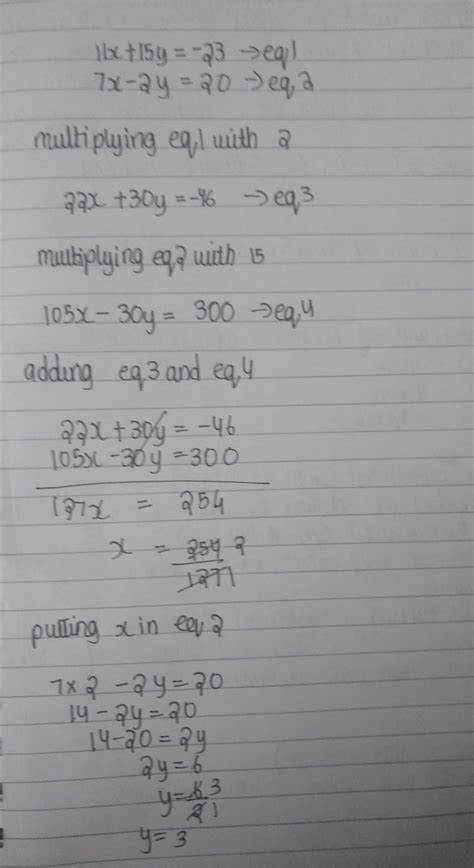 11x+15y=-23 →eq1
7x-2y=20 →eq2
multiplying eq1 with 2
22x+30y=-46 →eq3
multiplying eq2 with 15
105x-30y=300 →eq4
adding eq3 and eq4
22x+30y=-46
105x-30y=300
127x = 254
x = 254 2
127 1
putting x in eq 2
7x2-2y=20
14-2y=20
14-20=2y
2y=6
y=6 3
2 1
y=3